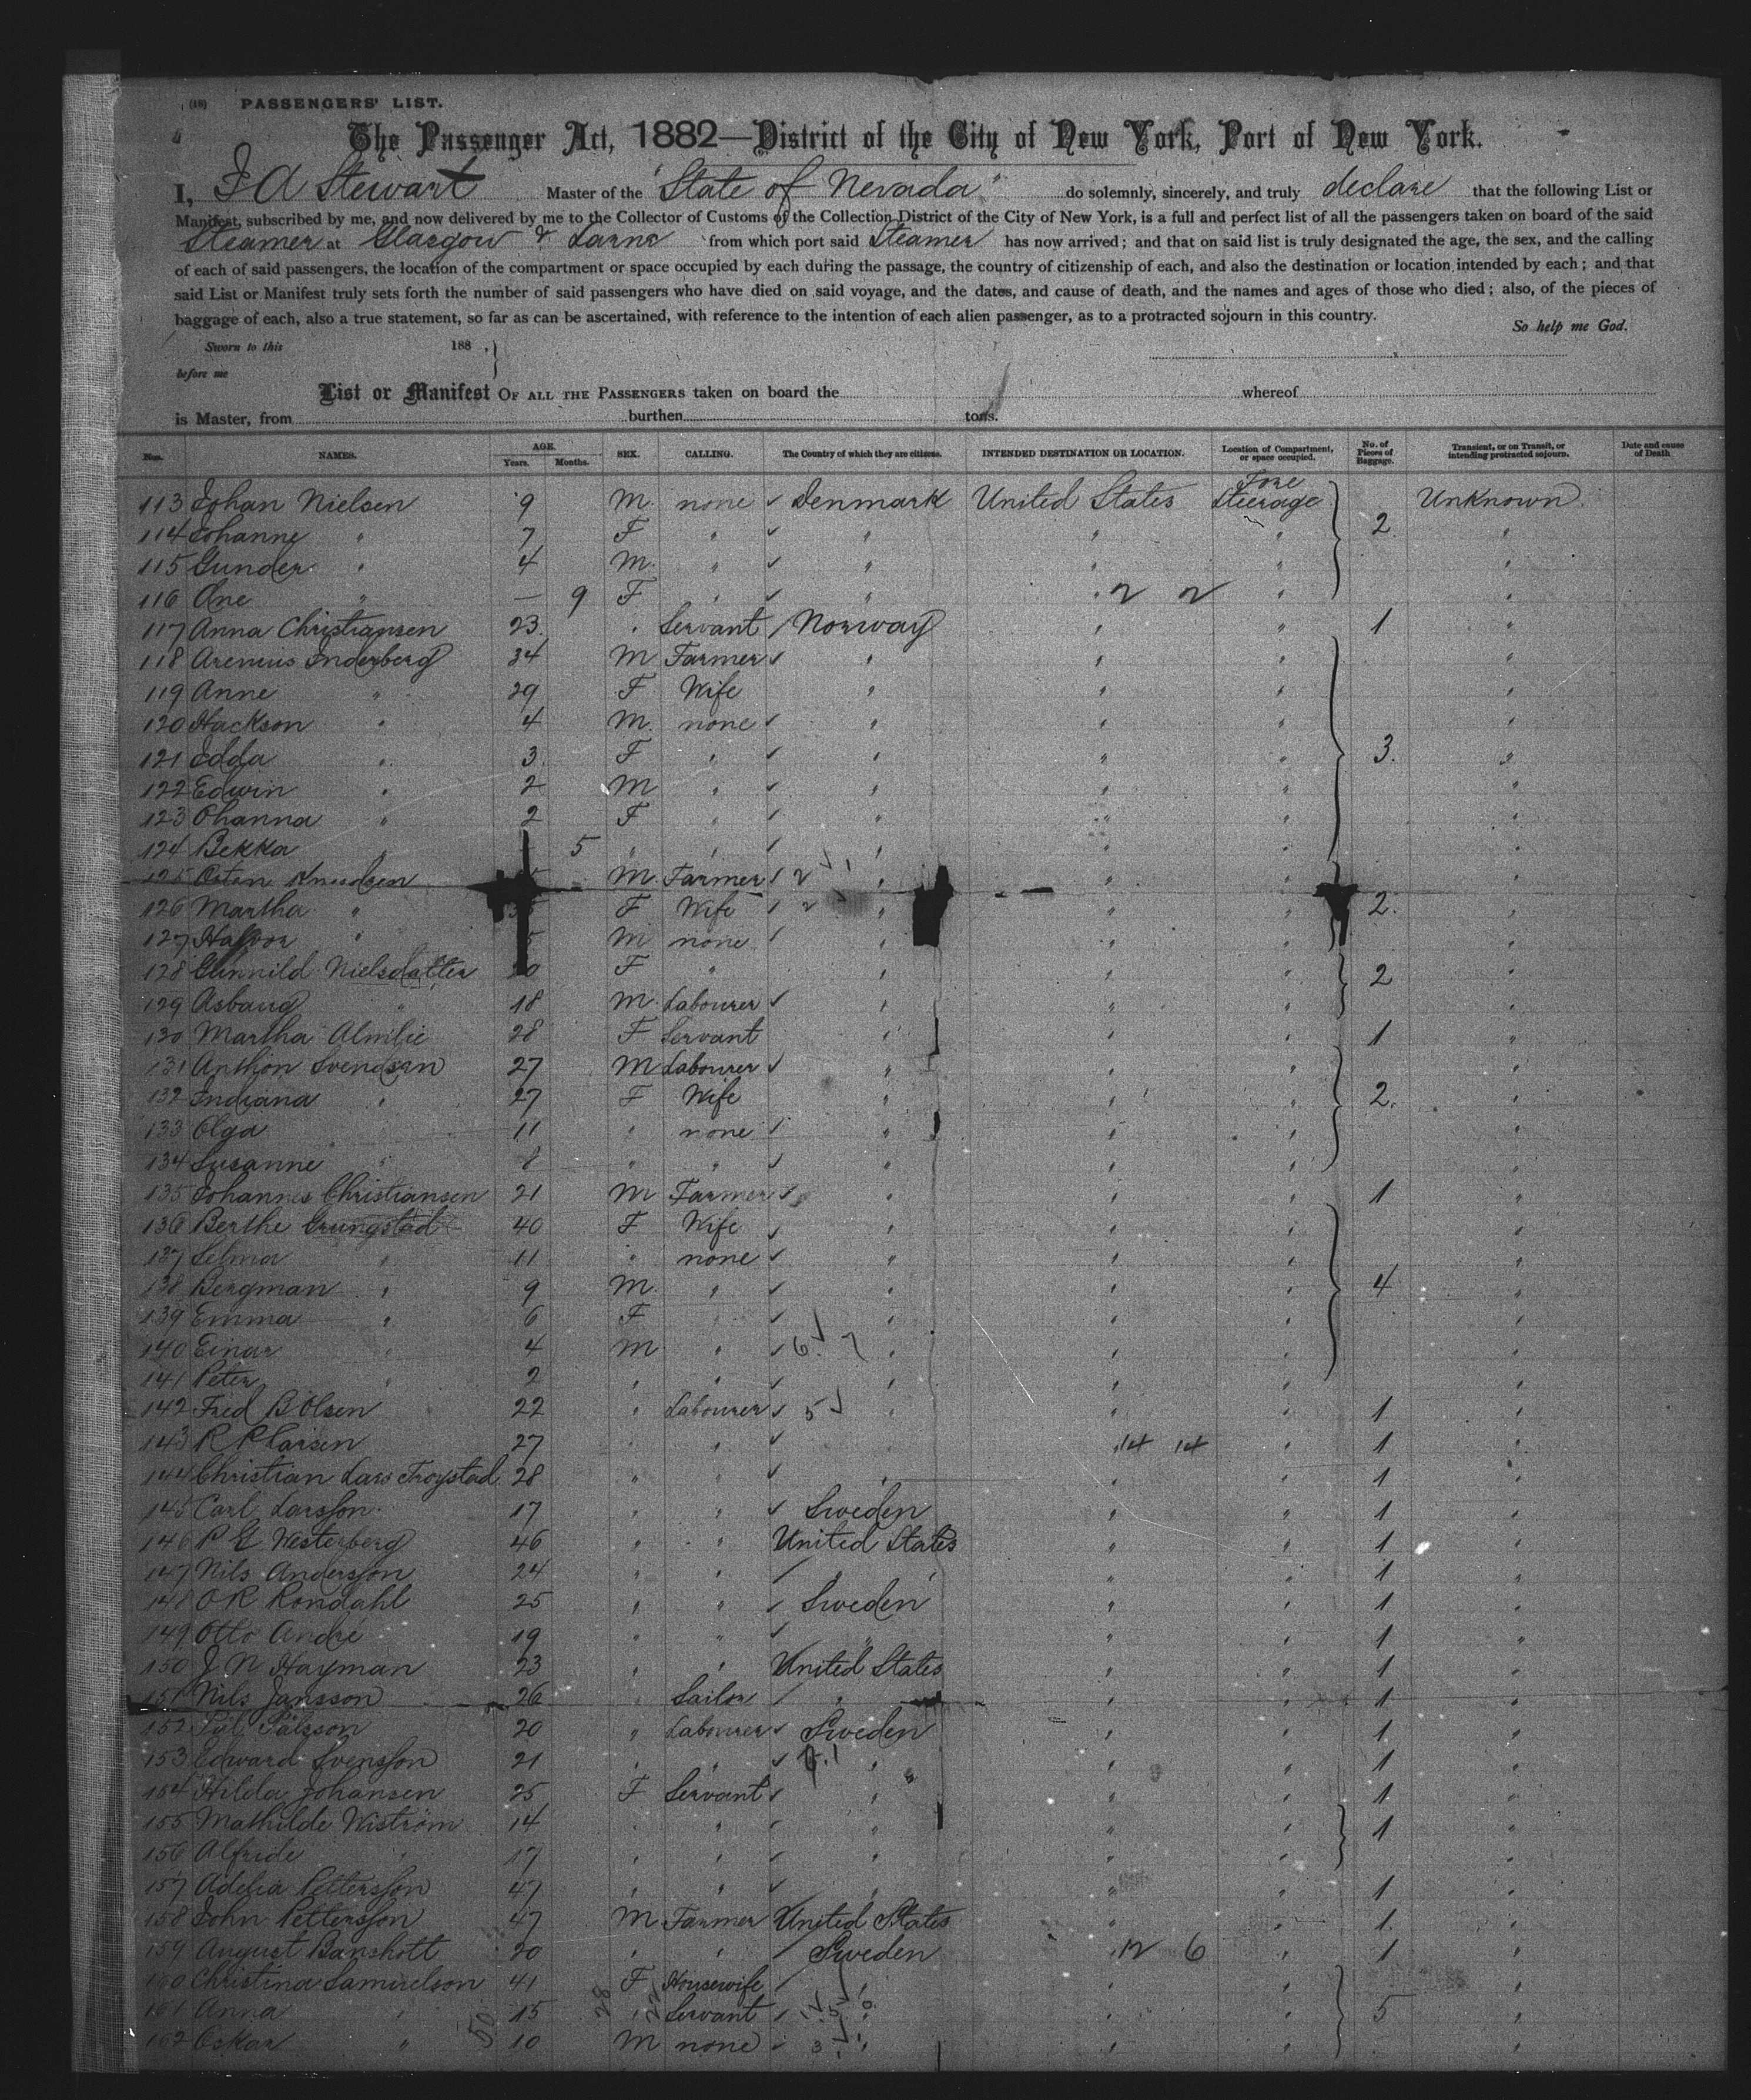 (18) PASSENGERS' LIST.
The Passenger Act, 1882—District of the City of New York, Port of New York.
I, J A Stewart Master of the "State of Nevada" do solemnly, sincerely, and truly declare that the following List or
Manifest, subscribed by me, and now delivered by me to the Collector of Customs of the Collection District of the City of New York, is a full and perfect list of all the passengers taken on board of the said
Steamer at Glasgow & Larne from which port said Steamer has now arrived; and that on said list is truly designated the age, the sex, and the calling
of each of said passengers, the location of the compartment or space occupied by each during the passage, the country of citizenship of each, and also the destination or location intended by each; and that
said List or Manifest truly sets forth the number of said passengers who have died on said voyage, and the dates, and cause of death, and the names and ages of those who died; also, of the pieces of
baggage of each, also a true statement, so far as can be ascertained, with reference to the intention of each alien passenger, as to a protracted sojourn in this country.
So help me God.
Sworn to this 188 ,
before me
List or Manifest OF ALL THE PASSENGERS taken on board the whereof
is Master, from burthen tons.
Nos. NAMES. AGE. Years. Months. SEX. CALLING. The Country of which they are citizens. INTENDED DESTINATION OR LOCATION. Location of Compartment, or space occupied. No. of Pieces of Baggage. Transient, or on Transit, or intending protracted sojourn. Date and cause of Death
113 Johan Nielsen 9 M. none ✓ Denmark United States Fore Steerage Unknown
114 Johanne " 7 F " ✓ " " " 2 "
115 Gunder " 4 M. " ✓ " " " "
116 Ane " — 9 F " ✓ " " 2 2 " "
117 Anna Christiansen 23 " Servant / Norway " " 1 "
118 Arenius Inderberg 34 M Farmer ✓ " " " "
119 Anne " 29 F Wife " " " "
120 Hackson " 4 M. none ✓ " " " "
121 Edda " 3 F " ✓ " " " 3. "
122 Edwin " 2 M " ✓ " " " "
123 Ohanna " 2 F " ✓ " " " "
124 Bekka " 5 " " ✓ " " " "
125 Osten Knudsen M. Farmer / 2 " " " "
126 Martha " F Wife / 2 " " " 2. "
127 Halvor " M none / " " " "
128 Gunnild Nielsdatter F " " " " 2 "
129 Asbaug " 18 M. Labourer ✓ " " " "
130 Martha Almlie 28 F Servant " " " 1 "
131 Anthon Svendsen 27 M Labourer ✓ " " " "
132 Indiana " 27 F Wife " " " 2. "
133 Olga 11 " none / " " " "
134 Susanne " 8 " " ✓ " " " "
135 Johannes Christiansen 21 M Farmer ✓ " " " 1 "
136 Berthe Grungstad 40 F Wife ✓ " " " "
137 Selma " 11 " none ✓ " " " "
138 Bergman " 9 M. " ✓ " " " 4 "
139 Emma " 6 F " ✓ " " " "
140 Einar " 4 M " ✓ 6. 7 " " " "
141 Peter " 2 " " ✓ " " " "
142 Fred B Olsen 22 " Labourer ✓ 5 ✓ " " " 1 "
143 R P Larsen 27 " " ✓ " 14 14 " 1 "
144 Christian Lars Troystad 28 " " ✓ " " " 1 "
145 Carl Larsson 17 " " ✓ Sweden " " 1 "
146 P G Westerberg 46 " " United States " " 1 "
147 Nils Andersson 24 " " / " " " 1 "
148 O R Rondahl 25 " " / Sweden " " 1 "
149 Otto André 19 " " ✓ " " " 1 "
150 J N Hayman 23 " " United States " " 1 "
151 Nils Jansson 26 " Sailor / " " " 1 "
152 Pål Pålsson 20 " Labourer ✓ Sweden " " 1 "
153 Edward Svensson 21 " " ✓ " " " 1 "
154 Hilda Johansen 25 F Servant ✓ " " " 1 "
155 Mathilde Wiström 14 " " ✓ " " " 1 "
156 Alfride " 17 " " ✓ " " " "
157 Adelia Pettersson 47 " " ✓ " " " 1 "
158 John Pettersson 47 M Farmer United States " " 1 "
159 August Banshott 20 " " / Sweden " 12 6 " 1 "
160 Christina Samuelson 41 F Housewife / " " " "
161 Anna " 15 " Servant / " " " 5 "
162 Oskar " 10 M none ✓ 3 " " " "